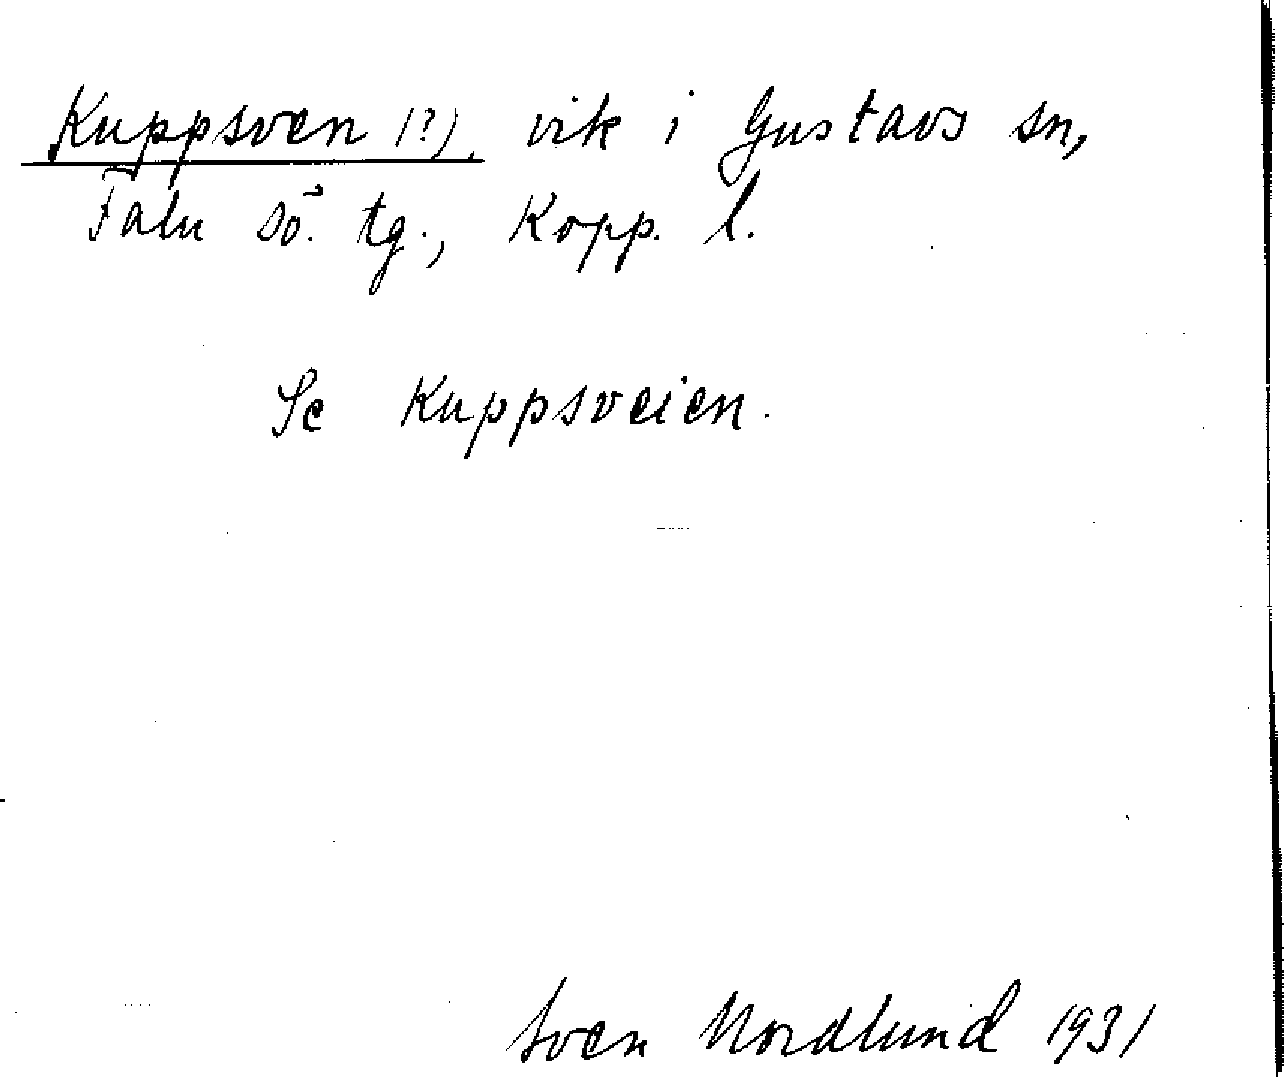 Kuppsven (?), vik i Gustavs sn,
Falu sö. tg., Kopp. l.
Se Kuppsveien.
Sven Nordlund 1931